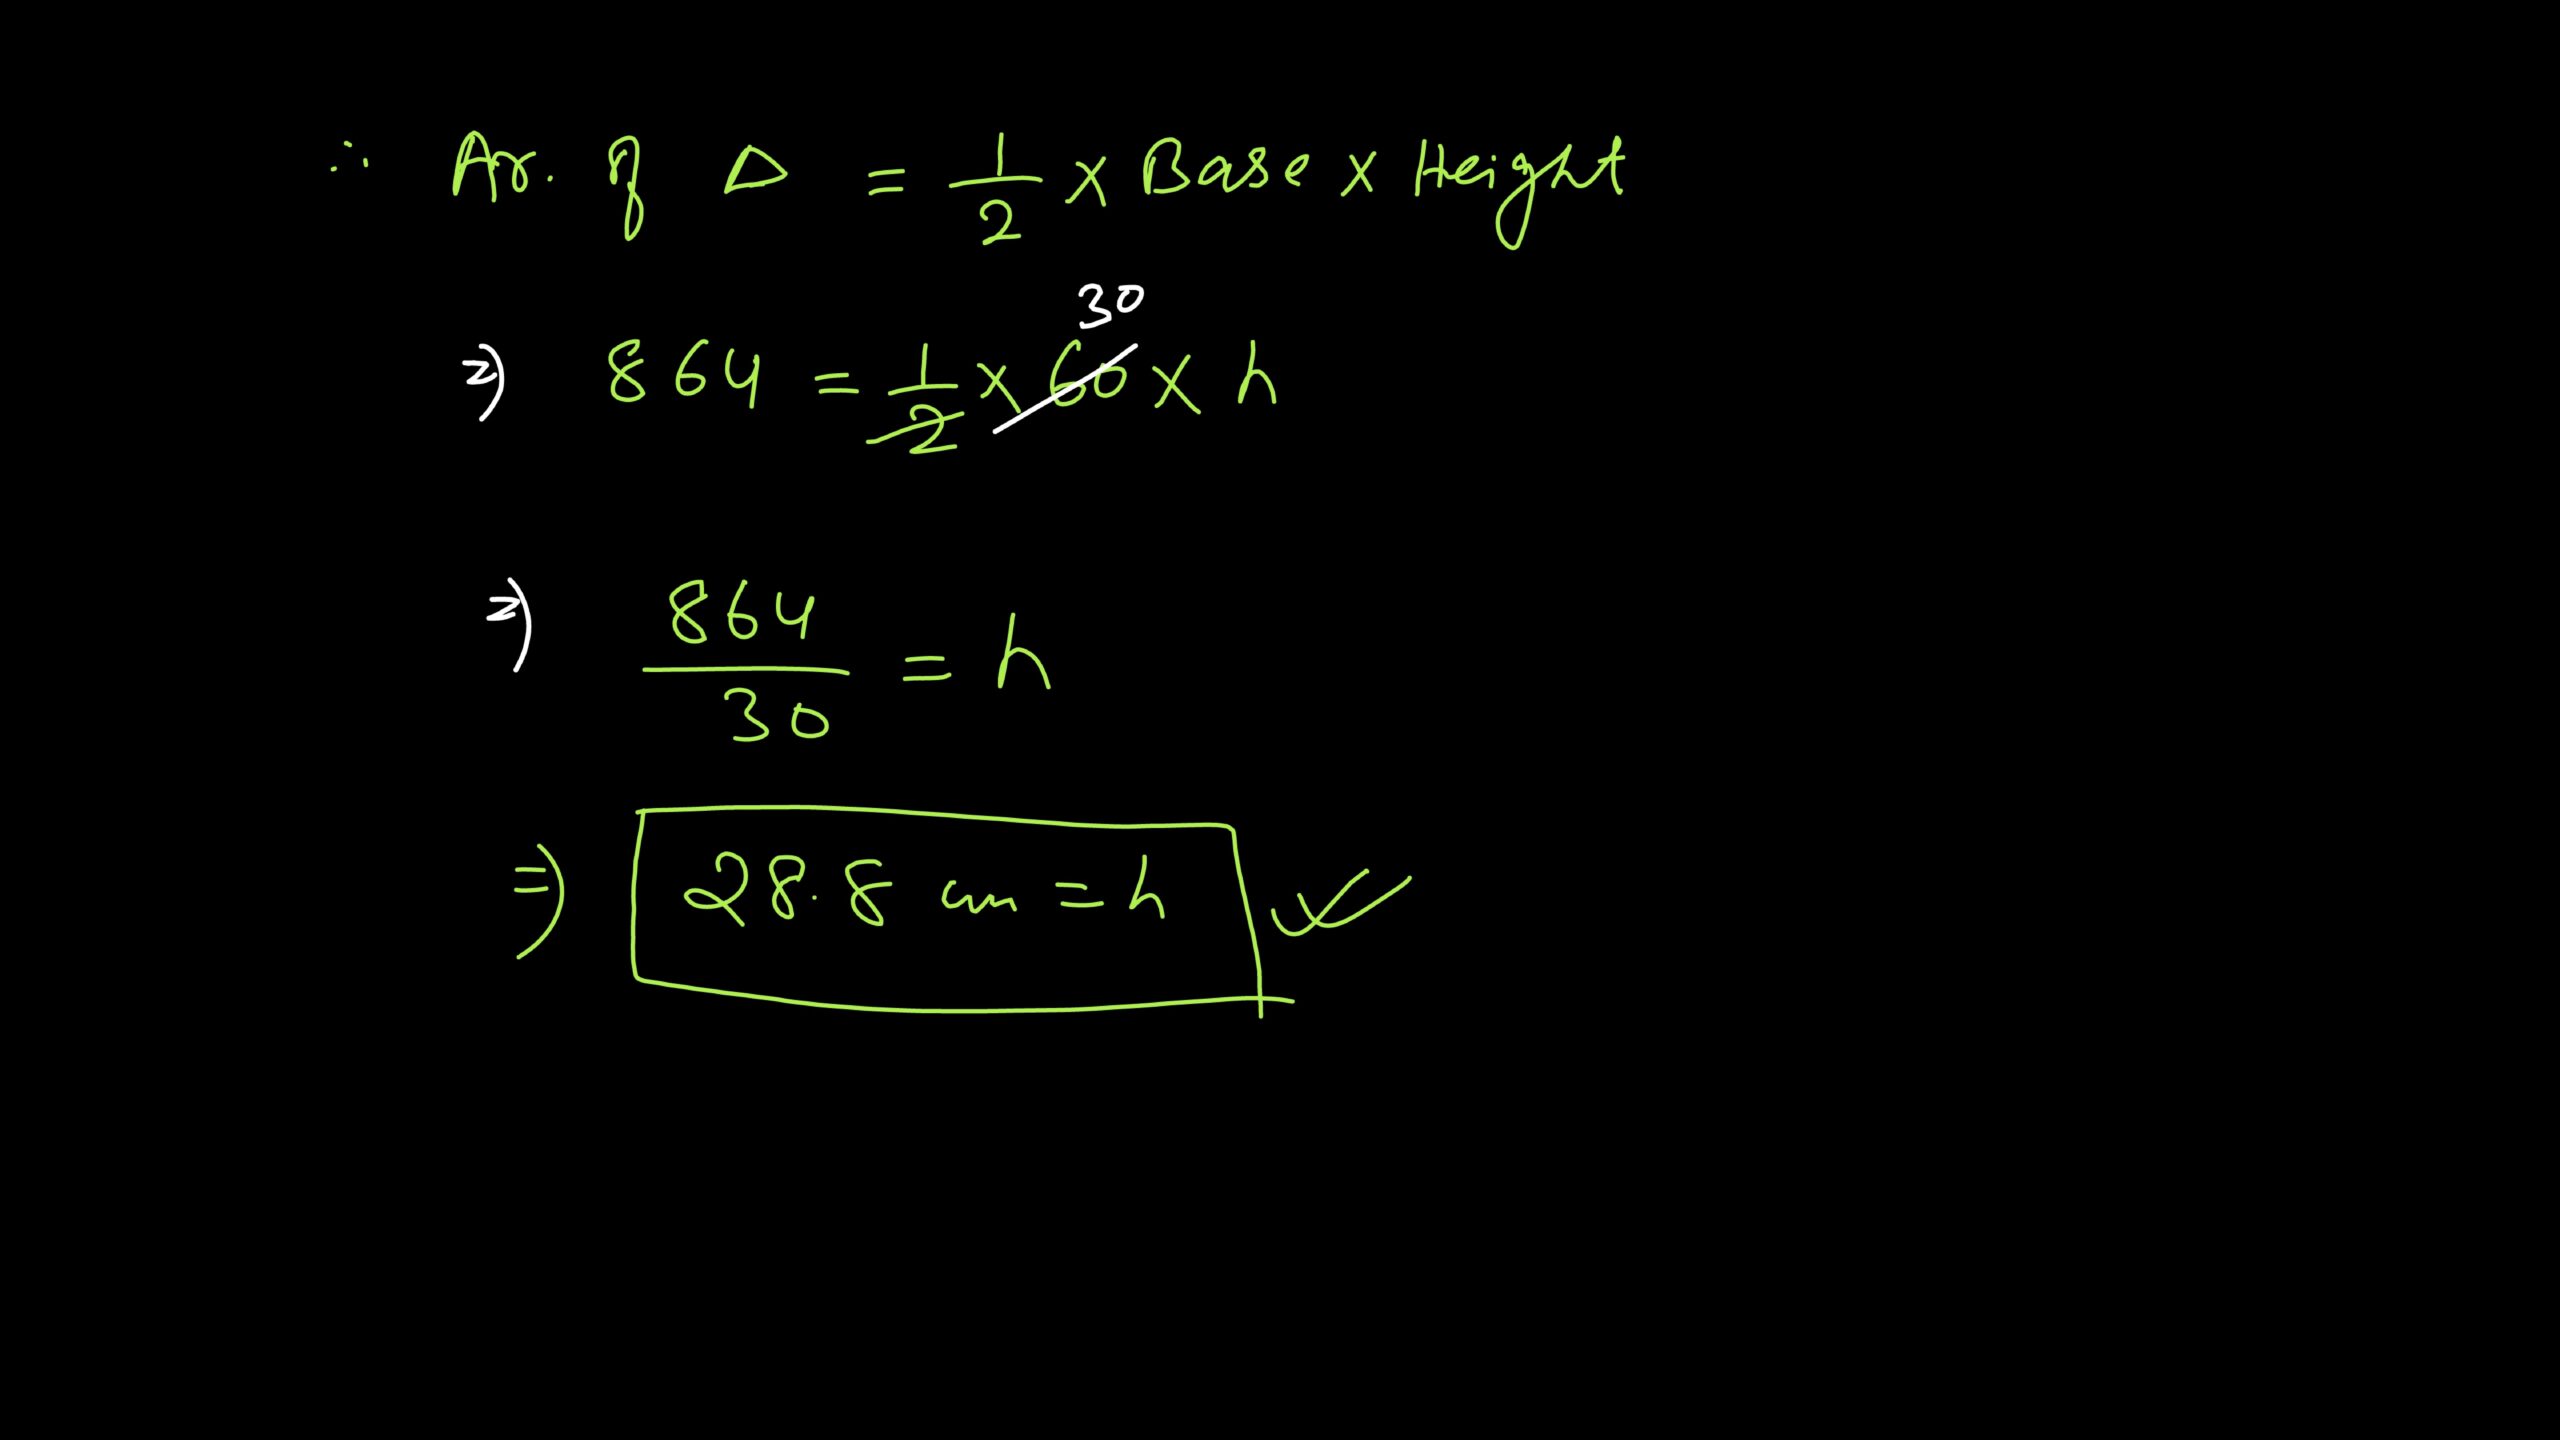 ∴ Ar. of Δ = 1/2 × Base × Height
30
⇒ 864 = 1/2 × 60 × h
⇒ 864/30 = h
⇒ 28.8 cm = h ✓